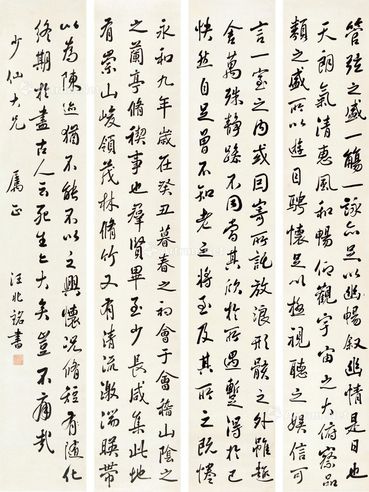 管弦之盛一觴一詠亦足以幽暢敘幽情是日也
天朗氣清惠風和暢仰觀宇宙之大俯察品
類之盛所以遊目騁懷足以極視聽之娛信可
言一室之內或因寄所託放浪形骸之外雖趣
舍萬殊靜躁不同當其欣於所遇暫得於己
快然自足曾不知老之將至及其所之既惓
永和九年歲在癸丑暮春之初會于會稽山陰之
之蘭亭脩禊事也羣賢畢至少長咸集此地
有崇山峻領茂林脩竹又有清流激湍暎帶
以為陳迹猶不能不以之興懷況脩短有隨化
終期於盡古人云死生亦大矣豈不痛哉
少仙大兄 屬正 汪兆銘書